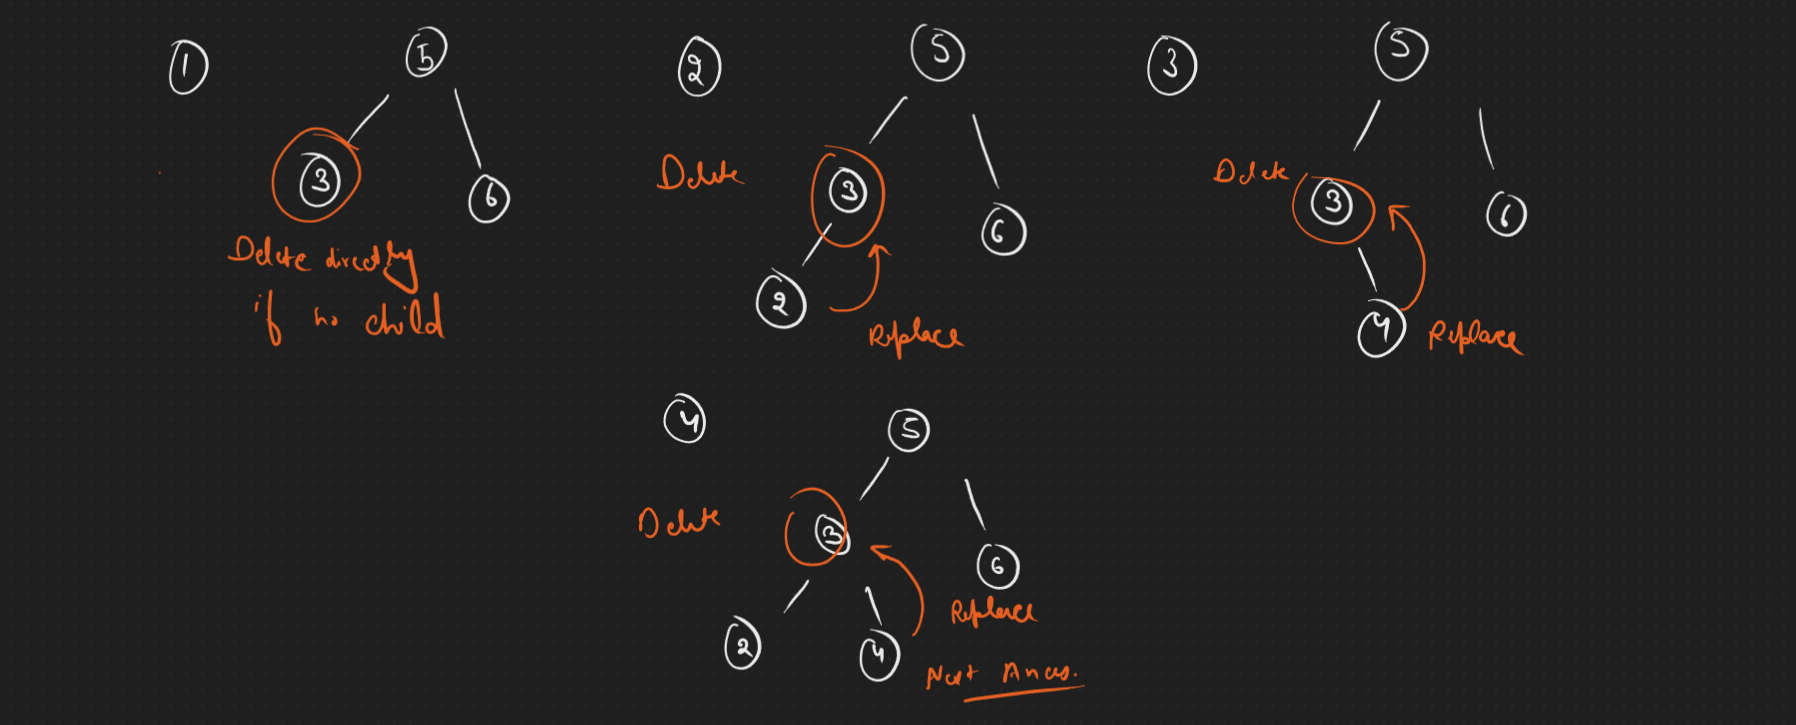 1
5
3
6
Delete directly
if no child
2
5
Delete
3
6
2
Replace
3
5
Delete
3
6
4
Replace
4
5
Delete
3
6
Replace
2
4